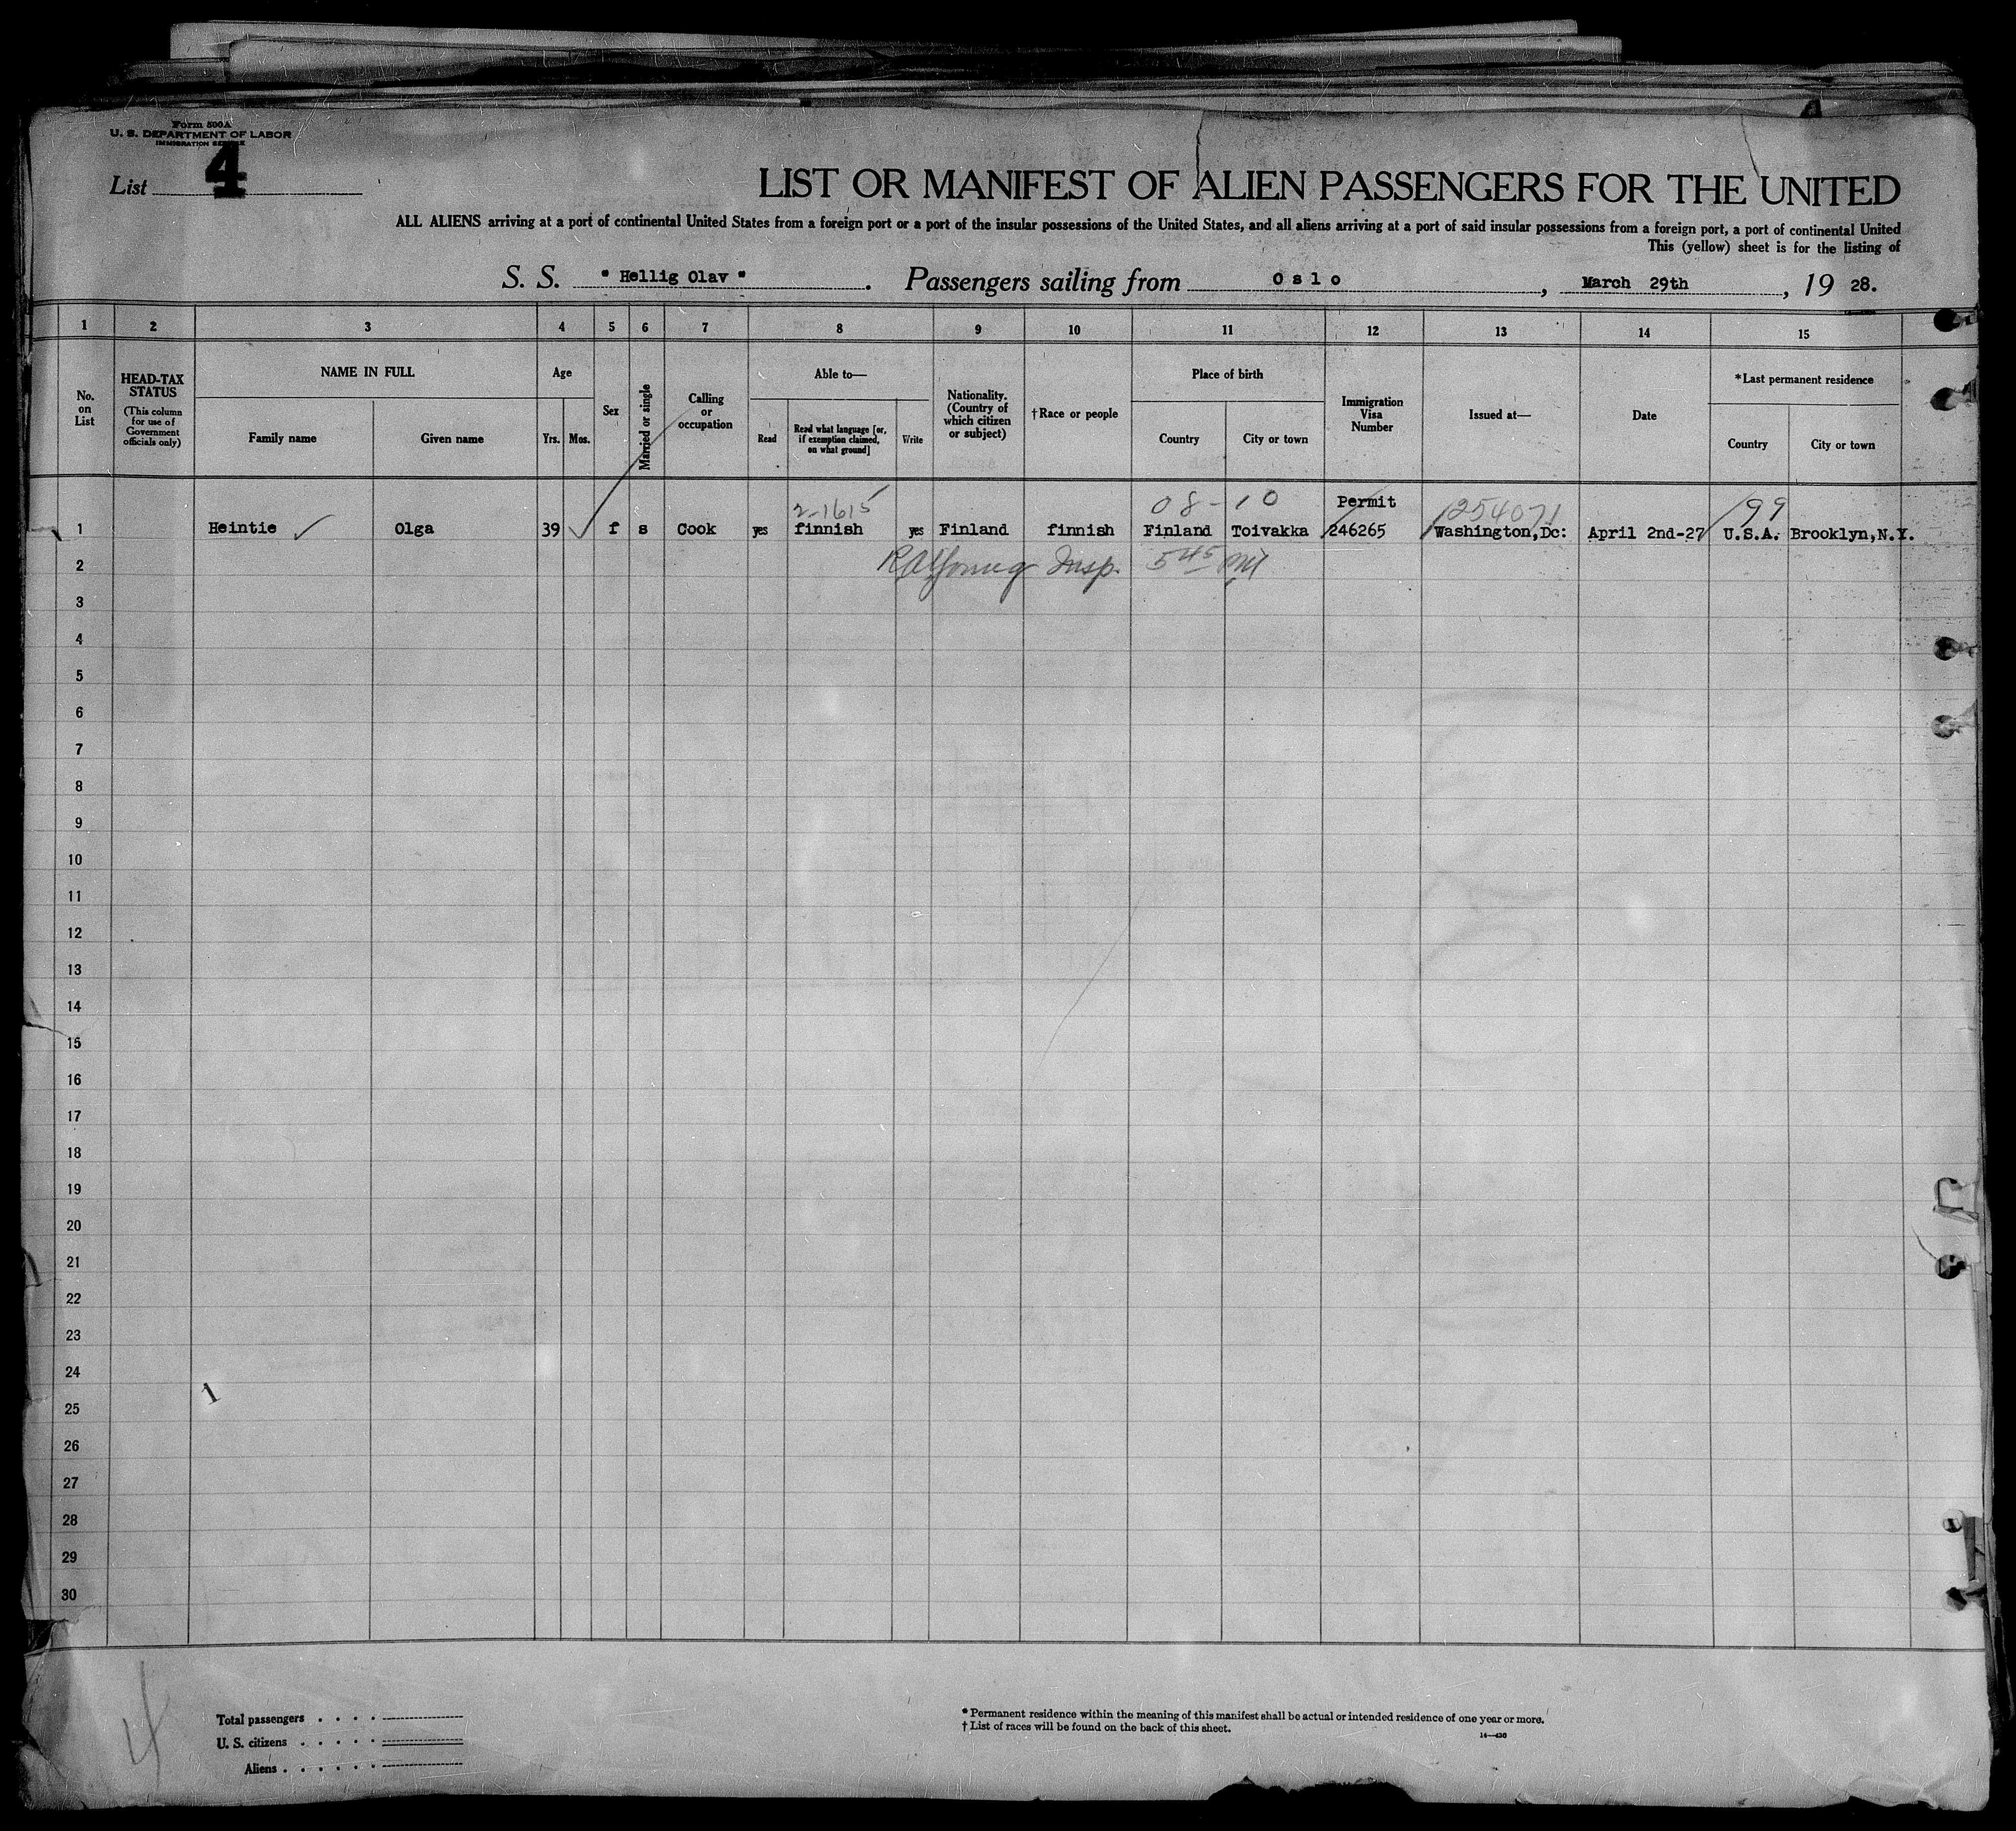 Form 500A
U. S. DEPARTMENT OF LABOR
IMMIGRATION SERVICE
List 4
LIST OR MANIFEST OF ALIEN PASSENGERS FOR THE UNITED
ALL ALIENS arriving at a port of continental United States from a foreign port or a port of the insular possessions of the United States, and all aliens arriving at a port of said insular possessions from a foreign port, a port of continental United
This (yellow) sheet is for the listing of
S. S. "Hellig Olav". Passengers sailing from Oslo, March 29th, 19 28.
1 2 3 4 5 6 7 8 9 10 11 12 13 14 15
No. on List
HEAD-TAX STATUS
(This column for use of Government officials only)
NAME IN FULL
Family name Given name
Age
Yrs. Mos.
Sex
Married or single
Calling or occupation
Able to—
Read
Read what language [or, if exemption claimed, on what ground]
Write
Nationality. (Country of which citizen or subject)
†Race or people
Place of birth
Country City or town
Immigration Visa Number
Issued at—
Date
*Last permanent residence
Country City or town
2-1615 08-10 Permit 1254071 99
1 Heintie Olga 39 f s Cook yes finnish yes Finland finnish Finland Toivakka 246265 Washington,Dc: April 2nd-27 U.S.A. Brooklyn,N.Y.
2 Insp. 545 PM
3
4
5
6
7
8
9
10
11
12
13
14
15
16
17
18
19
20
21
22
23
24
1
25
26
27
28
29
30
4
Total passengers . . . .
U. S. citizens . . . . .
Aliens . . . . . .
* Permanent residence within the meaning of this manifest shall be actual or intended residence of one year or more.
† List of races will be found on the back of this sheet.
14—430